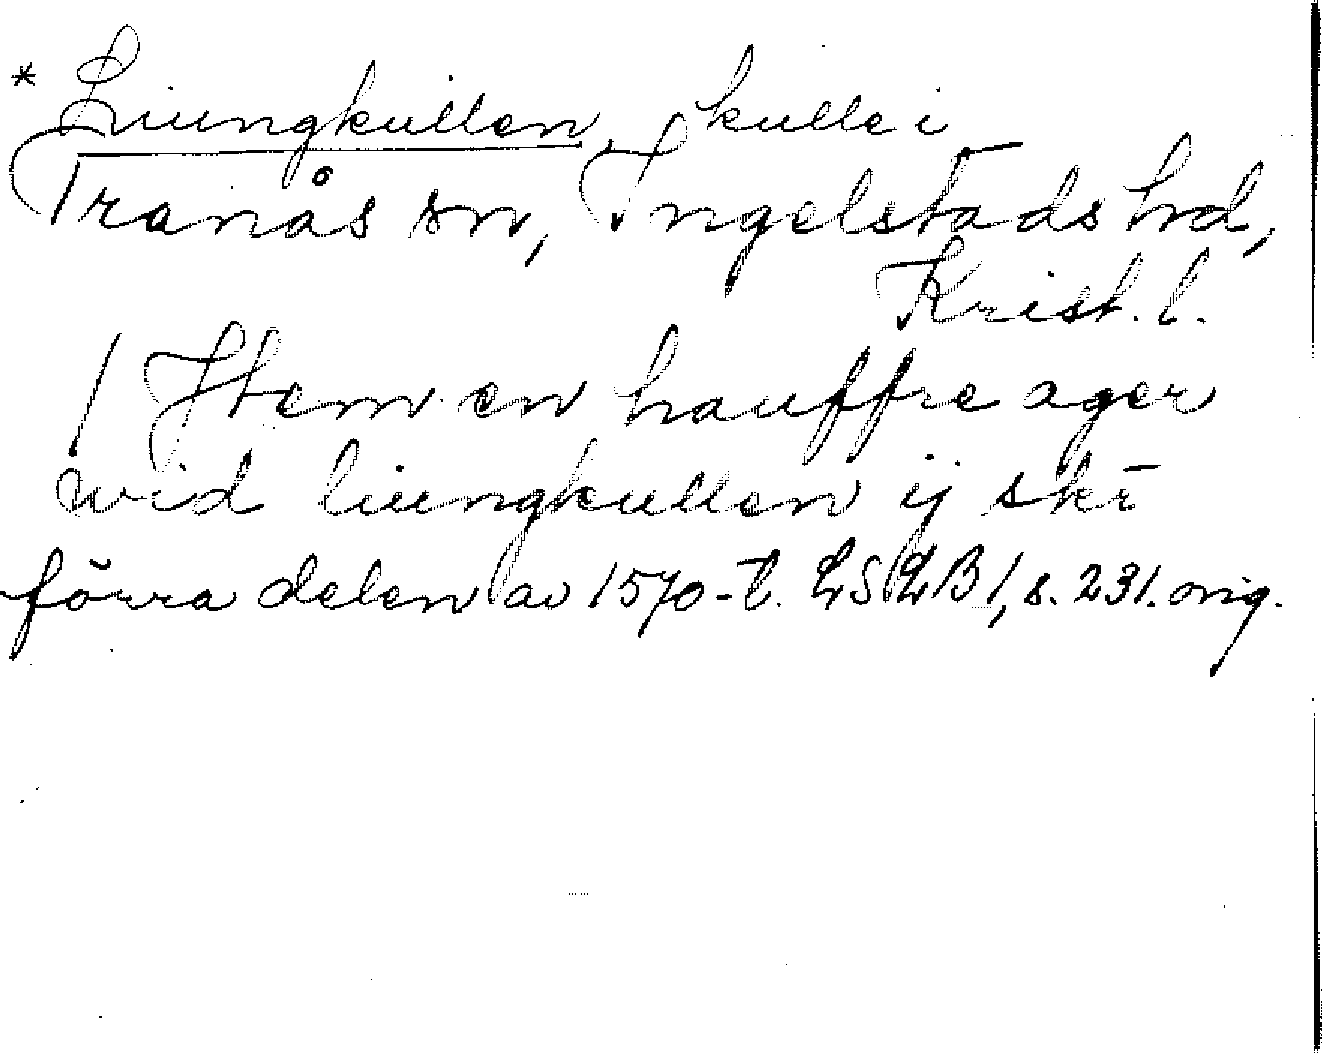 * Liungkullen, kulle i
Tranås sn, Ingelstads hd,
Krist. l.
/ Jtem en hauffre ager
wid liungkullen ij skr
förra delen av 1570-t. LSLB 1, s. 231. orig.